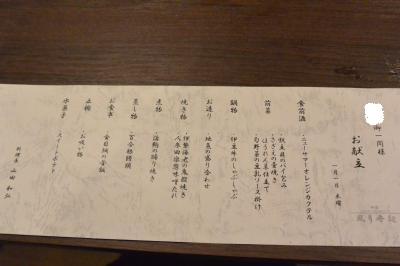 御一同様
お献立
一月一日 木曜
食前酒
・ニューサマーオレンジカクテル
前菜
・帆立貝のパイ包み
・さざえの壷焼き
ほうれん草仕立て
・旬野菜の豆乳ソース掛け
鍋物
・伊豆牛のしゃぶしゃぶ
お造り
・地魚の盛り合わせ
焼き物
・伊勢海老の鬼殻焼き
煮物
・海鮑の踊り焼き
蒸し物
・百合根饅頭
お食事
・金目鯛の釜飯
止椀
・お吸い物
水菓子
・スイートポテト
料理長